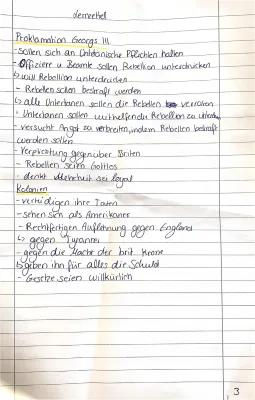 Lernzettel
Proklamation Georgs III
- sollen sich an Untertanische Pflichten halten
- Offiziere u Beamte sollen Rebellion unterdrücken
↳ will Rebellion unterdrücken
- Rebellen sollen bestraft werden
↳ alle Untertanen sollen die Rebellen verraten
- Untertanen sollen mithelfende Rebellion zu
- versucht Angst zu verbreiten, indem Rebellen bestraft
werden sollen
- Verpflichtung gegenüber Briten
- Rebellen seien Gottlos
- denkt Mehrheit sei loyal
Kolonien
- verteidigen ihre Taten
- sehen sich als Amerikaner
- Rechtfertigen Auflehnung gegen England
↳ gegen Tyrannei
- gegen die Macht der brit. Krone
↳ geben ihn für alles die Schuld
- Gesetze seien willkürlich
3